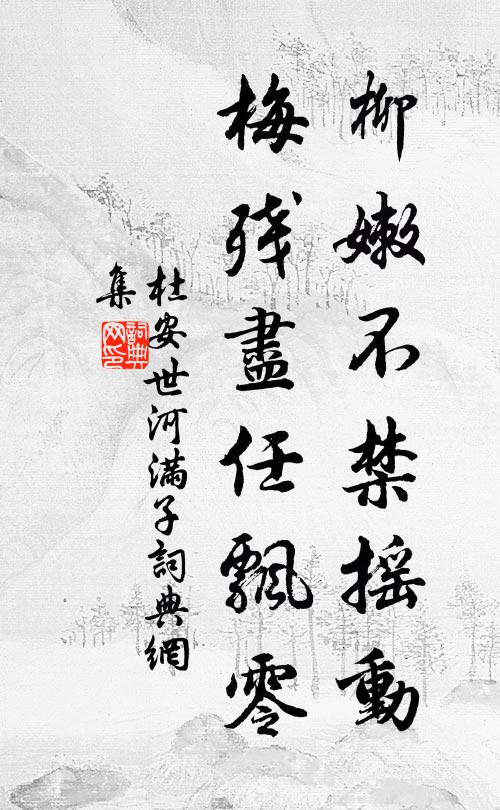 柳嫩不禁摇動
梅残盡任飄零
杜安世河滿子詞典網
集
詞典网印